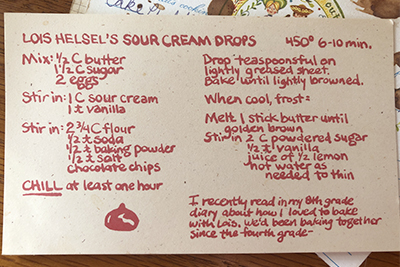 LOIS HELSEL'S SOUR CREAM DROPS 450° 6-10 min.
Mix: ½ C butter
1½ C sugar
2 eggs
Stir in: 1 C sour cream
1 t vanilla
Stir in: 2¾ C flour
½ t soda
½ t baking powder
½ t salt
chocolate chips
CHILL at least one hour
Drop teaspoonsful on
lightly greased sheet.
Bake until lightly browned.
When cool, frost:
Melt 1 stick butter until
golden brown
Stir in 2 C powdered sugar
½ t vanilla
juice of ½ lemon
hot water as
needed to thin
I recently read in my 8th grade
diary about how I loved to bake
with Lois. We'd been baking together
since the fourth grade-